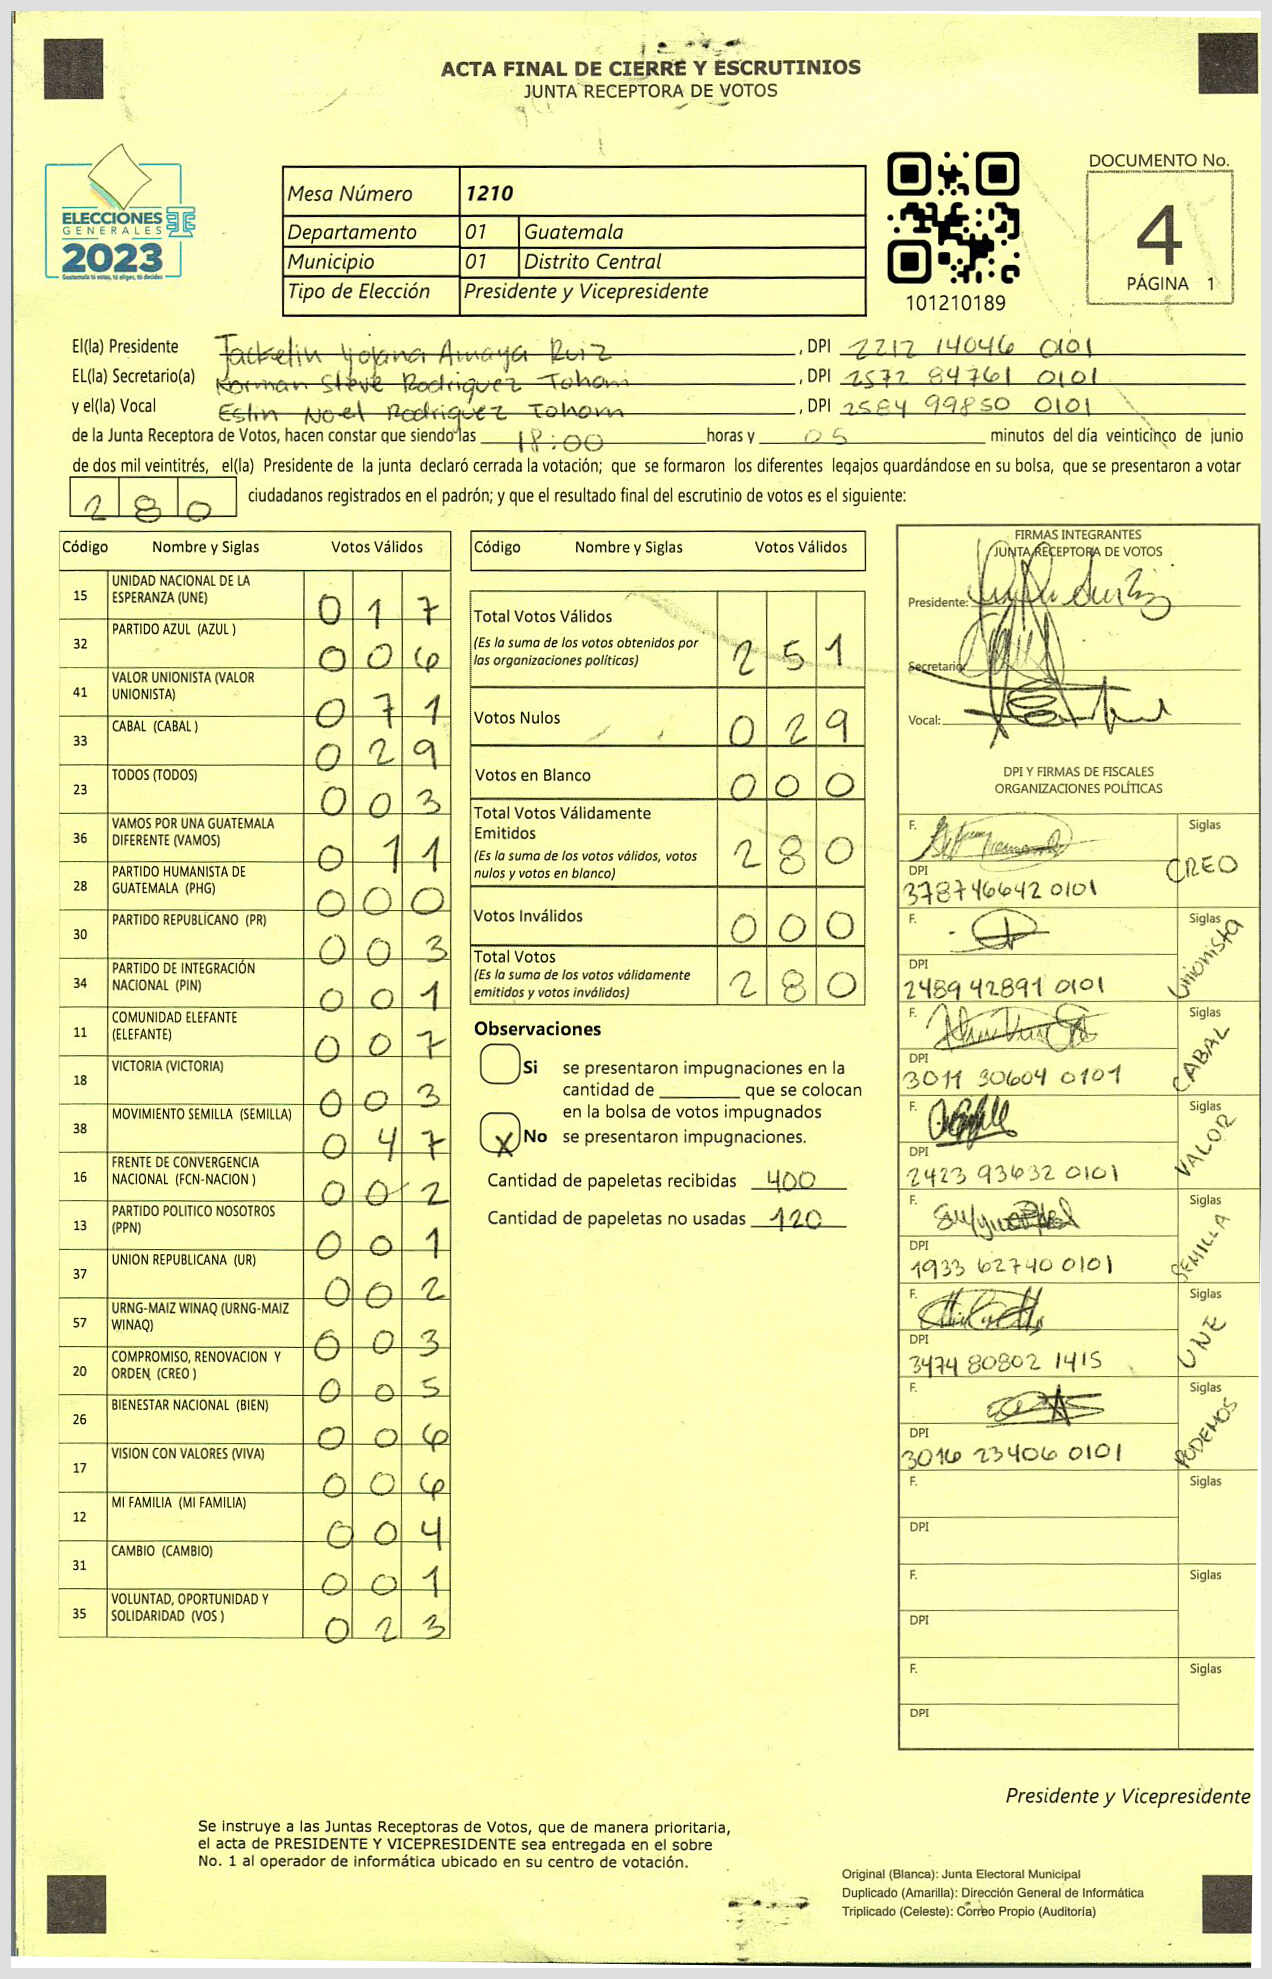 ACTA FINAL DE CIERRE Y ESCRUTINIOS
JUNTA RECEPTORA DE VOTOS
ELECCIONES
GENERALES
2023
Guatemala tú votas, tú eliges, tú decides
Mesa Número 1210
Departamento 01 Guatemala
Municipio 01 Distrito Central
Tipo de Elección Presidente y Vicepresidente
101210189
DOCUMENTO No.
4
PÁGINA 1
El(la) Presidente Jackelin Yojana Amaya Ruiz , DPI 2212 14046 0101
EL(la) Secretario(a) Norman Steve Rodriguez Tohom , DPI 2572 84761 0101
y el(la) Vocal Estin Noel Rodriguez Tohom , DPI 2584 99850 0101
de la Junta Receptora de Votos, hacen constar que siendo las 18:00 horas y 05 minutos del día veinticinco de junio
de dos mil veintitrés, el(la) Presidente de la junta declaró cerrada la votación; que se formaron los diferentes legajos guardándose en su bolsa, que se presentaron a votar
280 ciudadanos registrados en el padrón; y que el resultado final del escrutinio de votos es el siguiente:
Código Nombre y Siglas Votos Válidos
15 UNIDAD NACIONAL DE LA ESPERANZA (UNE) 017
32 PARTIDO AZUL (AZUL ) 006
41 VALOR UNIONISTA (VALOR UNIONISTA) 071
33 CABAL (CABAL ) 029
23 TODOS (TODOS) 003
36 VAMOS POR UNA GUATEMALA DIFERENTE (VAMOS) 011
28 PARTIDO HUMANISTA DE GUATEMALA (PHG) 000
30 PARTIDO REPUBLICANO (PR) 003
34 PARTIDO DE INTEGRACIÓN NACIONAL (PIN) 001
11 COMUNIDAD ELEFANTE (ELEFANTE) 007
18 VICTORIA (VICTORIA) 003
38 MOVIMIENTO SEMILLA (SEMILLA) 047
16 FRENTE DE CONVERGENCIA NACIONAL (FCN-NACION ) 002
13 PARTIDO POLITICO NOSOTROS (PPN) 001
37 UNION REPUBLICANA (UR) 002
57 URNG-MAIZ WINAQ (URNG-MAIZ WINAQ) 003
20 COMPROMISO, RENOVACION Y ORDEN (CREO ) 005
26 BIENESTAR NACIONAL (BIEN) 006
17 VISION CON VALORES (VIVA) 006
12 MI FAMILIA (MI FAMILIA) 004
31 CAMBIO (CAMBIO) 001
35 VOLUNTAD, OPORTUNIDAD Y SOLIDARIDAD (VOS ) 023
Código Nombre y Siglas Votos Válidos
Total Votos Válidos 251
(Es la suma de los votos obtenidos por
las organizaciones políticas)
Votos Nulos 029
Votos en Blanco 000
Total Votos Válidamente
Emitidos 280
(Es la suma de los votos válidos, votos
nulos y votos en blanco)
Votos Inválidos 000
Total Votos 280
(Es la suma de los votos válidamente
emitidos y votos inválidos)
Observaciones
Si se presentaron impugnaciones en la
cantidad de ________ que se colocan
en la bolsa de votos impugnados
X No se presentaron impugnaciones.
Cantidad de papeletas recibidas 400
Cantidad de papeletas no usadas 120
FIRMAS INTEGRANTES
JUNTA RECEPTORA DE VOTOS
Presidente:
Secretario:
Vocal:
DPI Y FIRMAS DE FISCALES
ORGANIZACIONES POLÍTICAS
F. Siglas CREO
DPI 378746642 0101
F. Siglas Unionista
DPI 2489 42891 0101
F. Siglas CABAL
DPI 3011 30604 0101
F. Siglas VALOR
DPI 2423 93632 0101
F. Siglas SEMILLA
DPI 1933 62740 0101
F. Siglas UNE
DPI 3474 80802 1415
F. Siglas PODEMOS
DPI 3016 23406 0101
F. Siglas
DPI
F. Siglas
DPI
F. Siglas
DPI
Presidente y Vicepresidente
Se instruye a las Juntas Receptoras de Votos, que de manera prioritaria,
el acta de PRESIDENTE Y VICEPRESIDENTE sea entregada en el sobre
No. 1 al operador de informática ubicado en su centro de votación.
Original (Blanca): Junta Electoral Municipal
Duplicado (Amarilla): Dirección General de Informática
Triplicado (Celeste): Correo Propio (Auditoría)